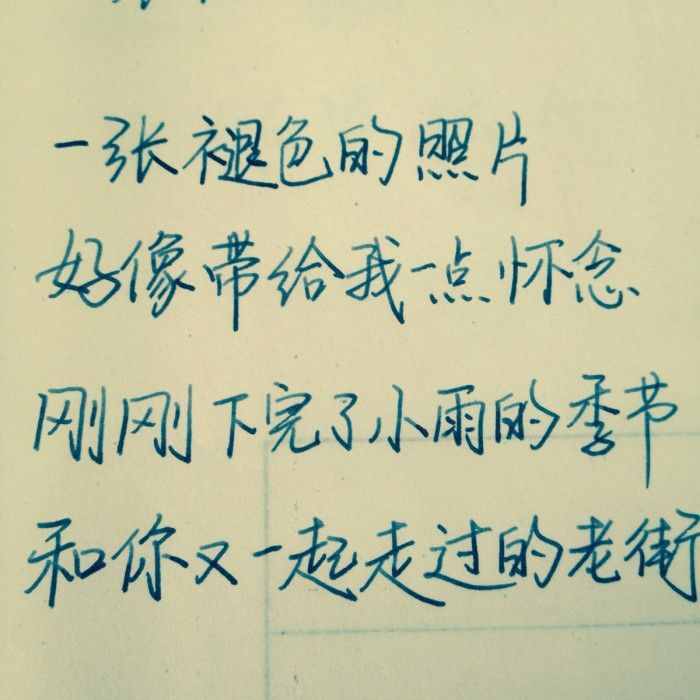 一张褪色的照片
好像带给我一点怀念
刚刚下完了小雨的季节
和你又一起走过的老街